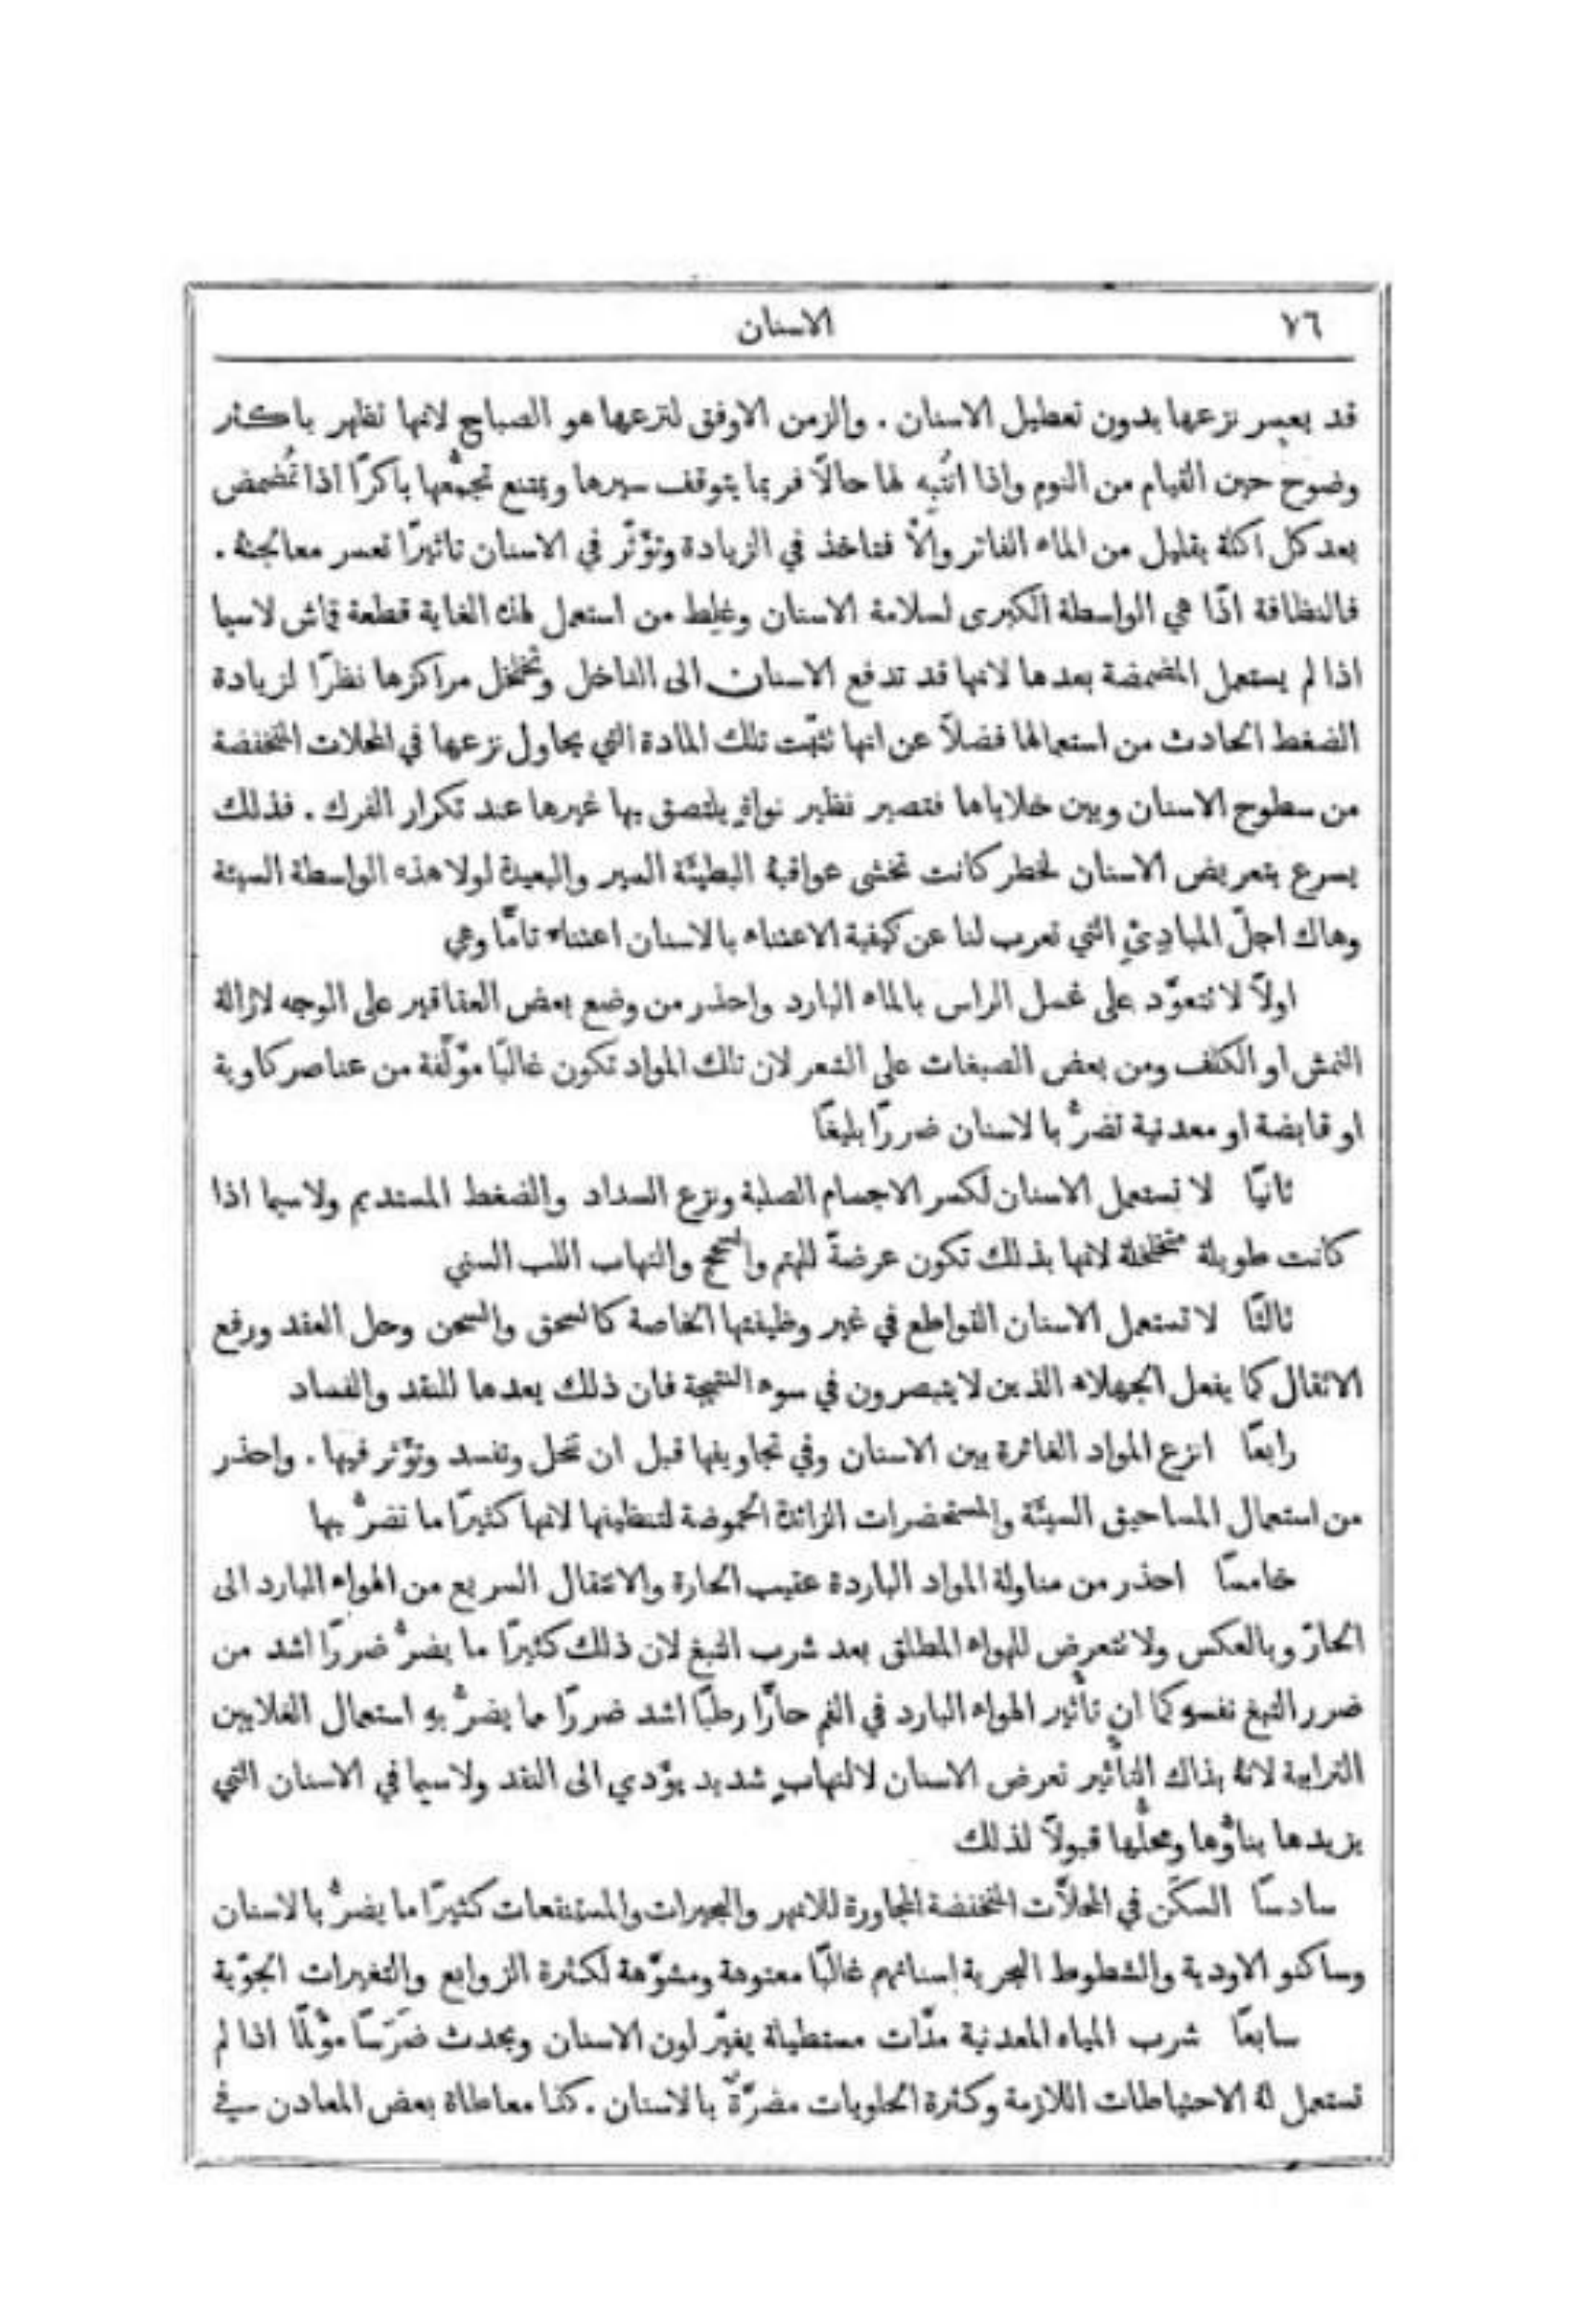 ٧٦
الاسنان
قد يعسر نزعها بدون تعطيل الاسنان . والزمن الاوفق لنزعها هو الصباح لانها تظهر باكثر
وضوح حين القيام من النوم واذا انتُبِه لها حالاً فربما يتوقف سيرها ويمتنع تجمُّعها باكرًا اذا تُمُضمض
بعد كل اكلة بقليل من الماء الفاتر والّا فتاخذ في الزيادة وتؤثّر في الاسنان تاثيرًا تعسر معالجتهُ .
فالنظافة اذًا هي الواسطة الكبرى لسلامة الاسنان وغلِط من استعمل لهذه الغاية قطعة قماش لاسيما
اذا لم يستعمل المضمضة بعدها لانها قد تدفع الاسنان الى الداخل وتخلخل مراكزها نظرًا لزيادة
الضغط الحادث من استعمالها فضلاً عن انها تثبّت تلك المادة التي يحاول نزعها في المحلات المنخفضة
من سطوح الاسنان وبين خلاياها فتصير نظير نواةٍ يلتصق بها غيرها عند تكرار الفرك . فذلك
يسرع بتعريض الاسنان لخطر كانت تخشى عواقبهُ البطيئة السير والبعيدة لولا هذه الواسطة السيئة
وهاك اجلّ المبادِئِ التي تعرب لنا عن كيفية الاعتناء بالاسنان اعتناء تامًّا وهي
اولاً لا تتعوَّد على غسل الراس بالماء البارد واحذر من وضع بعض العقاقير على الوجه لازالة
النمش او الكلف ومن بعض الصبغات على الشعر لان تلك المواد تكون غالبًا مؤلّفة من عناصر كاوية
او قابضة او معدنية تضرُّ بالاسنان ضررًا بليغًا
ثانيًا لا تستعمل الاسنان لكسر الاجسام الصلبة ونزع السداد والضغط المستديم ولاسيما اذا
كانت طويلة متخلخلة لانها بذلك تكون عرضةً للهتم والتهاب اللب السني
ثالثًا لا تستعمل الاسنان القواطع في غير وظيفتها الخاصة كالسحق والسحن وحل العقد ورفع
الاثقال كما يفعل الجهلاء الذين لا يتبصرون في سوء النتيجة فان ذلك يعدها للنقد والفساد
رابعًا انزع المواد الغائرة بين الاسنان وفي تجاويفها قبل ان تحل وتفسد وتؤثر فيها . واحذر
من استعمال المساحيق السيئة والمستحضرات الزائدة الحموضة لتنظيفها لانها كثيرًا ما تضرُّ بها
خامسًا احذر من مناولة المواد الباردة عقيب الحارة والانتقال السريع من الهواء البارد الى
الحارّ وبالعكس ولا تتعرض للهواء المطلق بعد شرب التبغ لان ذلك كثيرًا ما يضرُّ ضررًا اشد من
ضرر التبغ نفسهِ كما ان تأثير الهواء البارد في الفم حارًّا رطبًا اشد ضررًا مما يضرُّ بهِ استعمال الغلايين
الترابية لانهُ بذاك التأثير تعرض الاسنان لالتهابٍ شديد يؤدي الى النقد ولاسيما في الاسنان التي
يزيدها بناؤُها ومحلُّها قبولاً لذلك
سادسًا السكَن في المحلاَّت المنخفضة المجاورة للانهر والبحيرات والمستنقعات كثيرًا ما يضرُّ بالاسنان
وساكنو الاودية والشطوط البحرية اسنانهم غالبًا معتوهة ومشوَّهة لكثرة الزوابع والتغيرات الجوّية
سابعًا شرب المياه المعدنية مدّات مستطيلة يغيّر لون الاسنان ويحدث ضَرَسًا مؤلمًا اذا لم
تستعمل لهُ الاحتياطات اللازمة وكثرة الحلويات مضرَّةٌ بالاسنان . كذا معاطاة بعض المعادن في